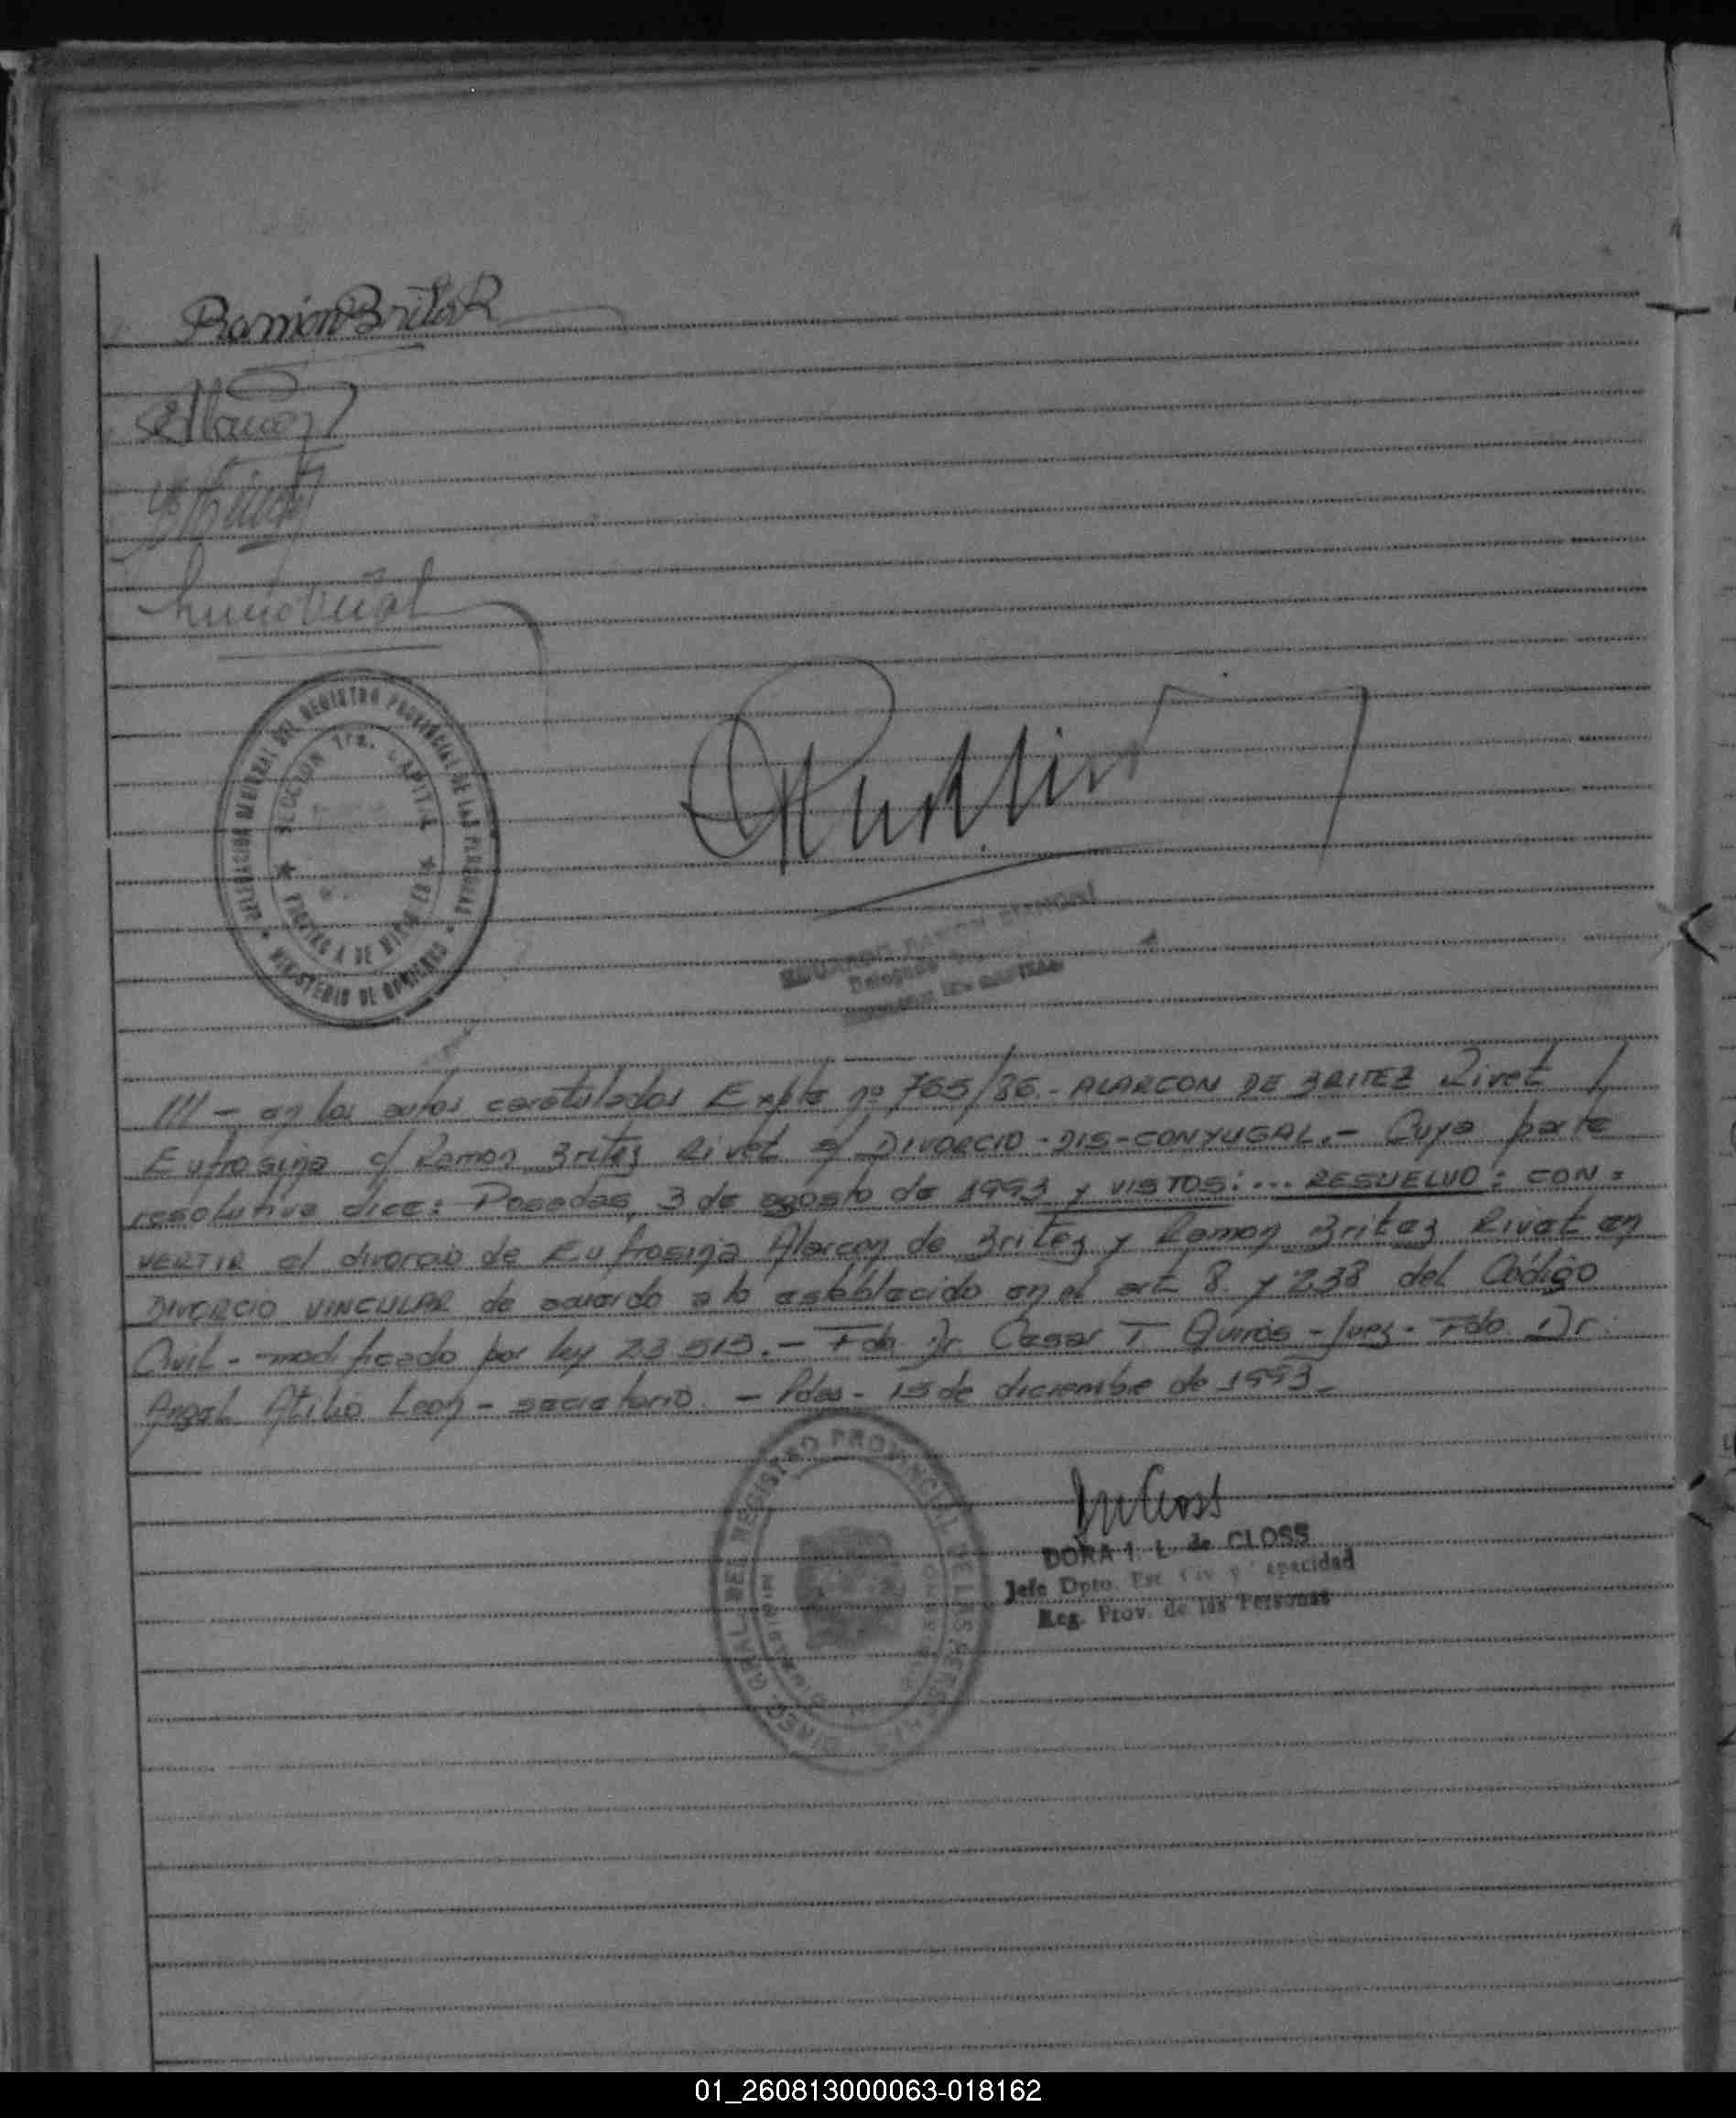 Ramón Britez R
DELEGACION GENERAL DEL REGISTRO PROVINCIAL DE LAS PERSONAS
SECCION 1ra. CAPITAL
MINISTERIO DE GOBIERNO
EDUARDO RAMON
Delegado
/// - en los autos caratulados Expte nº 765/86.- ALARCON DE BRITEZ Rivet
Eufrosina c/ Ramon Britez Rivet s/ DIVORCIO - DIS-CONYUGAL.- Cuya parte
resolutiva dice: Posadas, 3 de agosto de 1993 y VISTOS: ... RESUELVO: CON=
VERTIR el divorcio de Eufrosina Alarcon de Britez y Ramon Britez Rivet en
DIVORCIO VINCULAR de acuerdo a lo establecido en el art 8. y 238 del Código
Civil - modificado por ley 23.515.- Fdo. Dr. Cesar T Quirós - Juez - Fdo. Dr.
Angel Atilio Leon - secretario. - Pdas - 15 de diciembre de 1993.-
REGISTRO PROVINCIAL DE LAS PERSONAS
DORA I. L. de CLOSS
Jefe Dpto. Est Civ y Capacidad
Reg. Prov. de las Personas
01_260813000063-018162